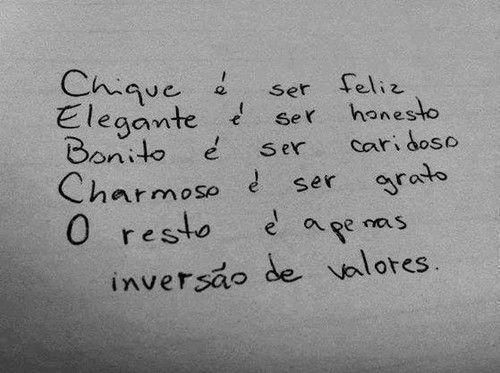 Chique é ser feliz
Elegante é ser honesto
Bonito é ser caridoso
Charmoso é ser grato
O resto é apenas
inversão de valores.